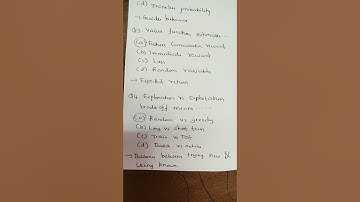 (d) Transition probability
→ Guides behavior
Q3. Value function estimates....
(a) Future cumulative reward
(b) Immediate reward
(c) Loss
(d) Random variable
→ Expected return
Q4. Exploration vs Exploitation
trade off means.....
(a) Random vs greedy
(b) Long vs short term
(c) Train vs Test
(d) Batch vs online
→ Balance between trying new &
using known.